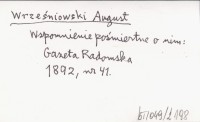 Wrześniowski August
Wspomnienie pośmiertne o nim:
Gazeta Radomska
1892, nr 41.